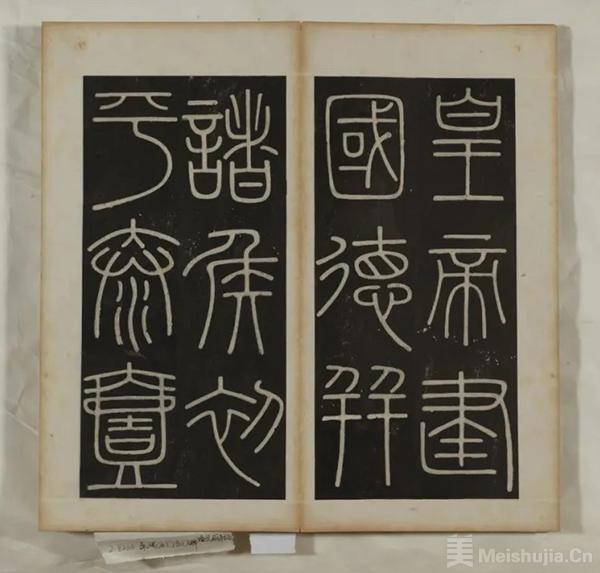 皇帝建
國德并
諸侯初
平泰壹
美 Meishujia.Cn